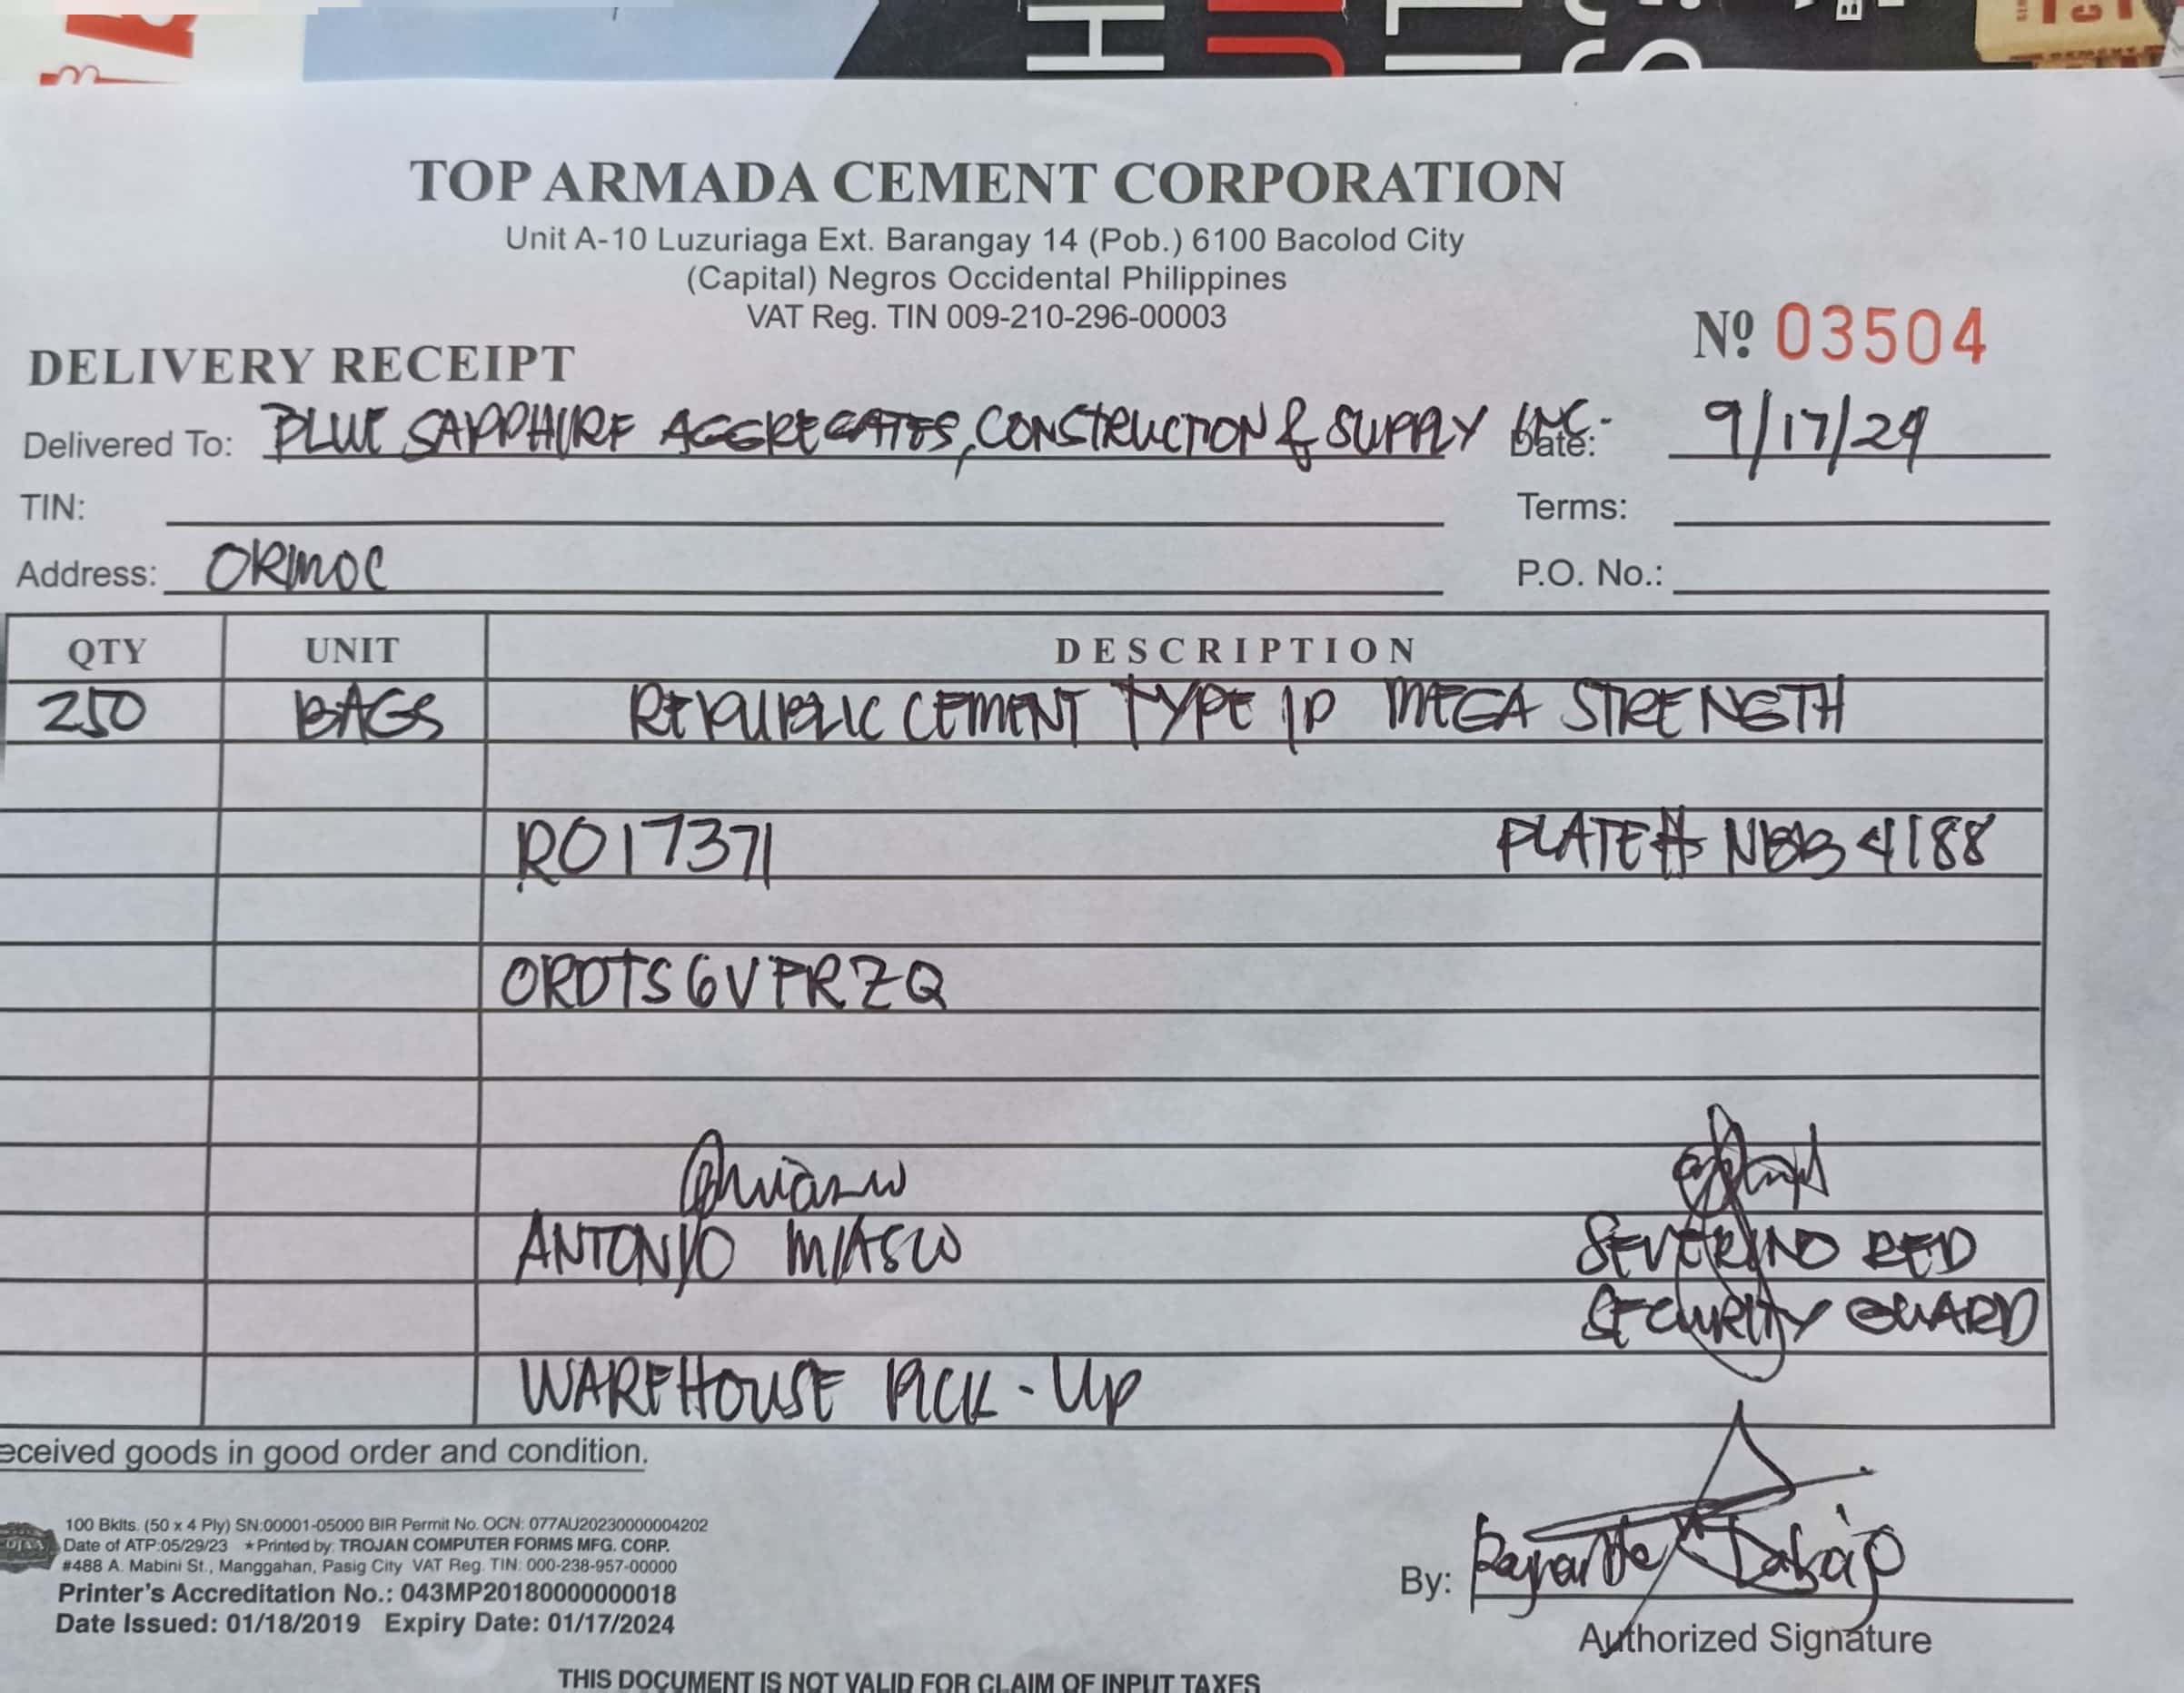 TOP ARMADA CEMENT CORPORATION
Unit A-10 Luzuriaga Ext. Barangay 14 (Pob.) 6100 Bacolod City
(Capital) Negros Occidental Philippines
VAT Reg. TIN 009-210-296-00003
Nº 03504
DELIVERY RECEIPT
Delivered To: BLUE SAPPHIRE AGGREGATES, CONSTRUCTION & SUPPLY INC. Date: 9/17/24
TIN: Terms:
Address: ORMOC P.O. No.:
QTY UNIT DESCRIPTION
250 BAGS REPUBLIC CEMENT TYPE 1P MEGA STRENGTH
RO17371 PLATE# NBB 4188
ORDTS6VPRZQ
ANTONIO MIASCO SEVERINO RED
SECURITY GUARD
WAREHOUSE PICK-UP
eceived goods in good order and condition.
100 Bklts. (50 x 4 Ply) SN:00001-05000 BIR Permit No. OCN: 077AU20230000004202
Date of ATP:05/29/23 ★Printed by: TROJAN COMPUTER FORMS MFG. CORP.
#488 A. Mabini St., Manggahan, Pasig City VAT Reg. TIN: 000-238-957-00000
Printer's Accreditation No.: 043MP20180000000018
Date Issued: 01/18/2019 Expiry Date: 01/17/2024
By:
Authorized Signature
THIS DOCUMENT IS NOT VALID FOR CLAIM OF INPUT TAXES